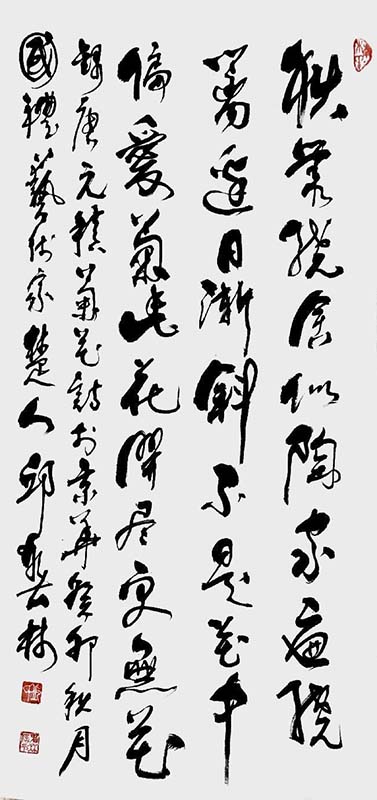 秋叢繞舍似陶家遍繞
籬邊日漸斜不是花中
偏愛菊此花開尽更無花
錄唐元稹菊花詩於京華癸卯秋月
國禮藝術家楚人邱林